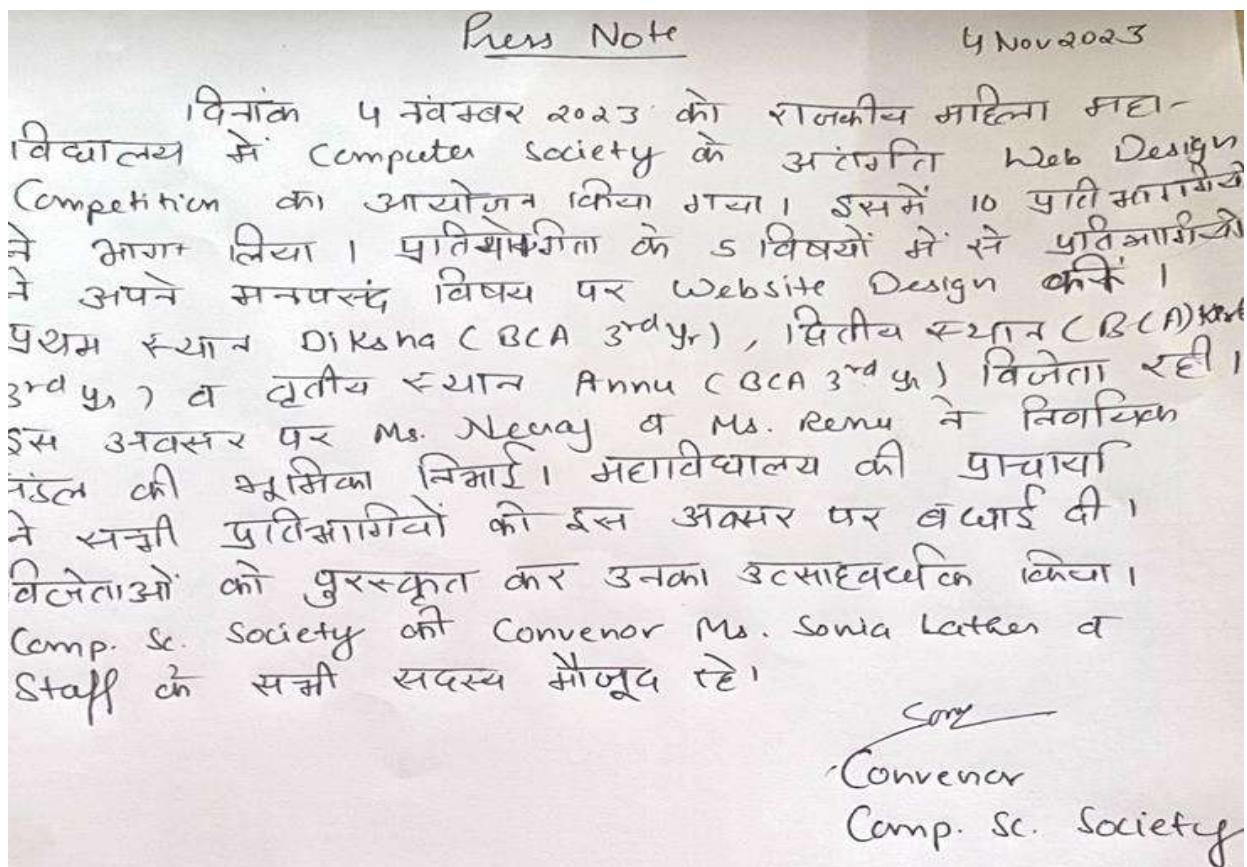 Press Note 4 Nov 2023
दिनांक 4 नवम्बर 2023 को राजकीय महिला महा-
विद्यालय में Computer Society के अंतर्गत Web Design
Competition का आयोजन किया गया। इसमें 10 प्रतिभागियों
ने भाग लिया। प्रतियोगीता के 5 विषयों में से प्रतिभागियों
ने अपने मनपसंद विषय पर Website Design
प्रथम स्थान Diksha (BCA 3rd yr), द्वितीय स्थान (BCA)
3rd yr) व तृतीय स्थान Annu (BCA 3rd yr) विजेता रही।
इस अवसर पर Ms. Neeraj व Ms. Renu ने निर्णायक
मंडल की भूमिका निभाई। महाविद्यालय की प्राचार्या
ने सभी प्रतिभागियों को इस अवसर पर बधाई दी।
विजेताओं को पुरस्कृत कर उनका उत्साहवर्धक किया।
Comp. Sc. Society की Convenor Ms. Sonia Lather व
Staff के सभी सदस्य मौजूद रहे।
Convenor
Comp. Sc. Society